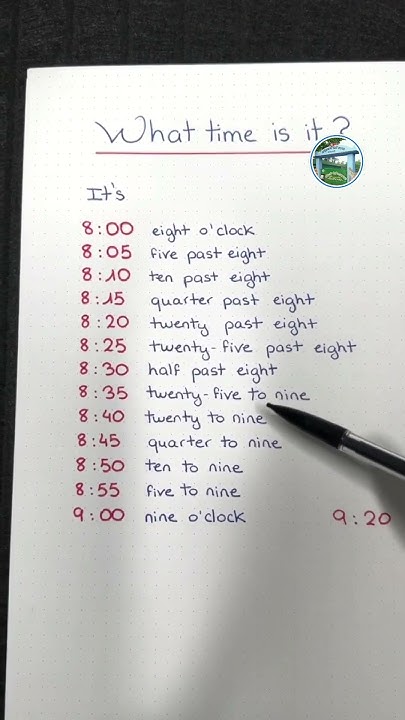 What time is it?
It's
8:00 eight o'clock
8:05 five past eight
8:10 ten past eight
8:15 quarter past eight
8:20 twenty past eight
8:25 twenty-five past eight
8:30 half past eight
8:35 twenty-five to nine
8:40 twenty to nine
8:45 quarter to nine
8:50 ten to nine
8:55 five to nine
9:00 nine o'clock 9:20